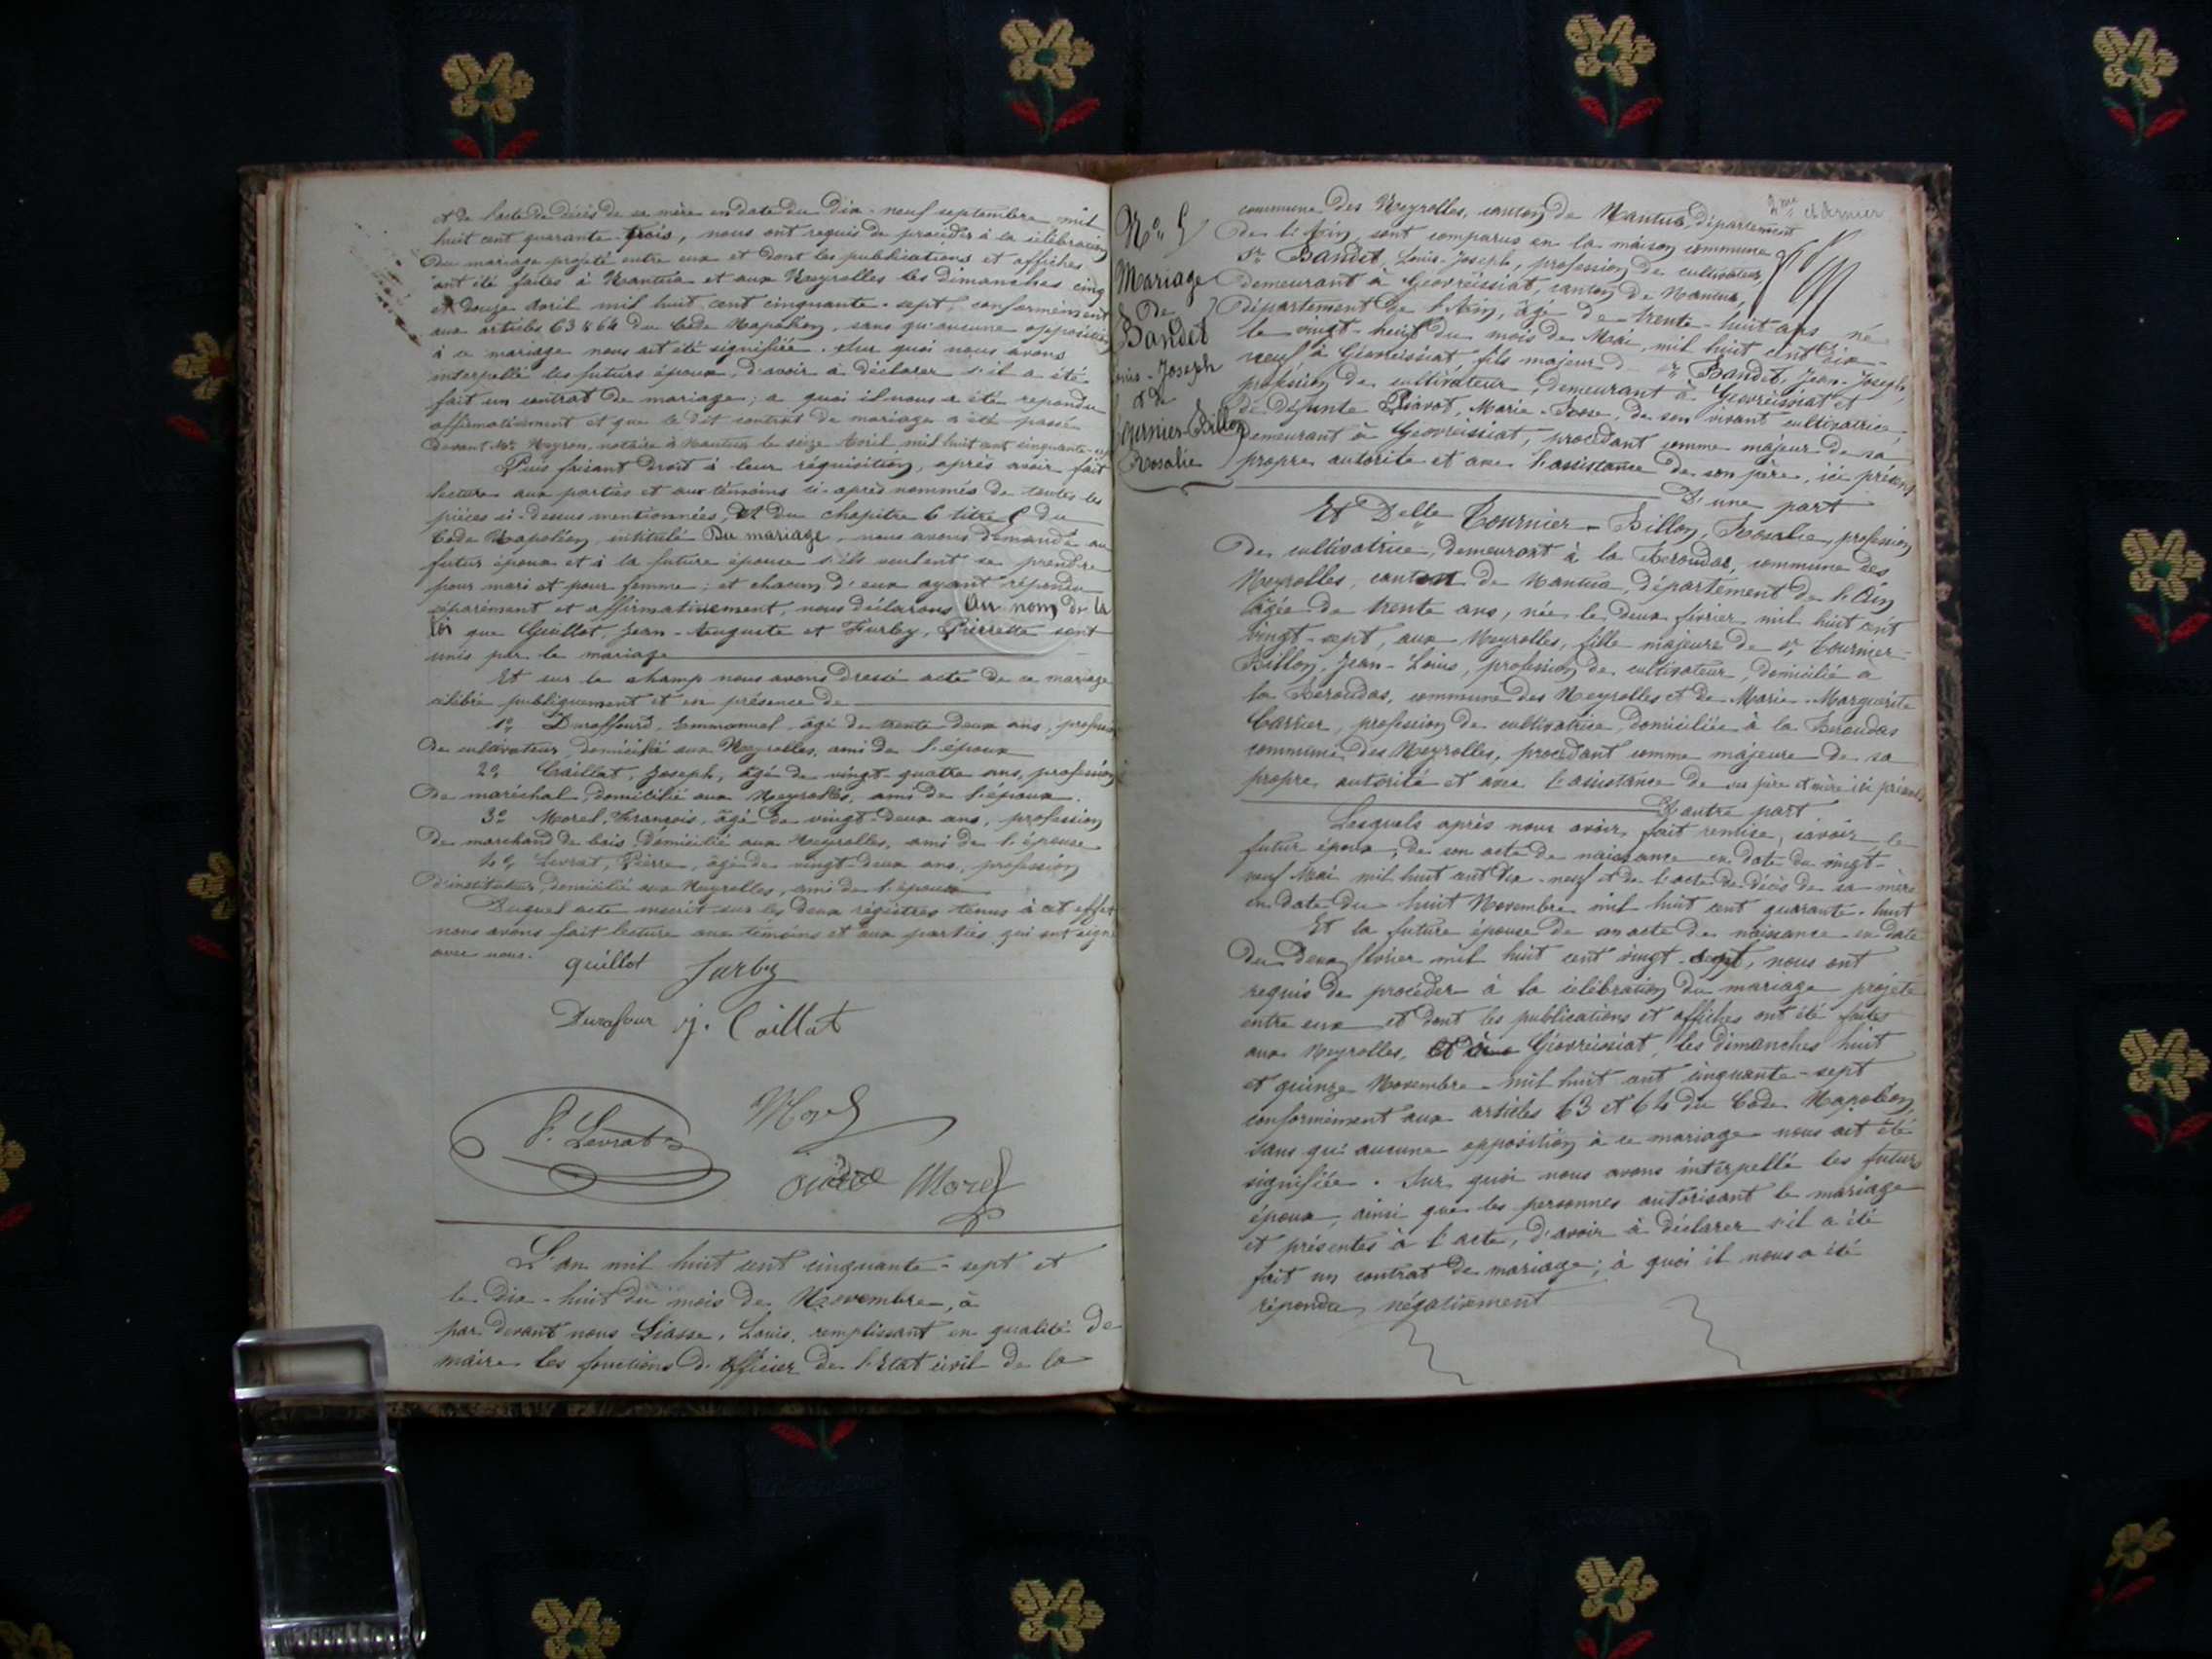 et de l'acte de décès de sa mère en date du Dix-neuf septembre mil
huit cent quarante-trois, nous ont requis de procéder à la célébration
du mariage projeté entre eux et dont les publications et affiches
ont été faites à Nantua et aux Neyrolles les dimanches cinq
et douze avril mil huit cent cinquante-sept, conformément
aux articles 63 & 64 du Code Napoléon, sans qu'aucune opposition
à ce mariage nous ait été signifiée. Sur quoi nous avons
interpellé les futurs époux, d'avoir à déclarer s'il a été
fait un contrat de mariage; a quoi il nous a été répondu
affirmativement et que le dit contrat de mariage a été passé
devant Me Neyron, notaire à Nantua le seize Avril mil huit cent cinquante-sept
Puis faisant droit à leur réquisition, après avoir fait
lecture aux parties et aux témoins ci-après nommés de toutes les
pièces ci-dessus mentionnées, et du chapitre 6 titre 5 du
Code Napoléon, intitulé Du mariage, nous avons demandé au
futur époux et à la future épouse s'ils veulent se prendre
pour mari et pour femme; et chacun d'eux ayant répondu
séparément et affirmativement, nous déclarons Au nom de la
loi que Guillot, Jean-Auguste et Furby, Pierrette sont
unis par le mariage
Et sur le champ nous avons dressé acte de ce mariage
célébré publiquement et en présence de
1o Duraffourd, Emmanuel, âgé de trente deux ans, profession
de cultivateur, domicilié aux Neyrolles, ami de l'époux
2o Caillat, Joseph, âgé de vingt-quatre ans, profession
de maréchal, domicilié aux Neyrolles, ami de l'époux.
3o Morel, François, âgé de vingt-deux ans, profession
de marchand de bois, domicilié aux Neyrolles, ami de l'épouse
4o Levrat, Pierre, âgé de vingt-deux ans, profession
d'instituteur, domicilié aux Neyrolles, ami de l'époux
Duquel acte inscrit sur les deux régistres tenus à cet effet
nous avons fait lecture aux témoins et aux parties qui ont signé
avec nous.
guillot furby
Durafour j. Caillat
P. Levrat Morel
Morel
L'an mil huit cent cinquante-sept et
le dix-huit du mois de Novembre, à
par devant nous Liasse, Louis, remplissant en qualité de
maire les fonctions d'officier de l'Etat civil de la
2me et dernier
No 5
Mariage
de
Bandet
Louis-Joseph
et de
Tournier-Billon
Rosalie
commune des Neyrolles, canton de Nantua, département
de l'Ain, sont comparus en la maison commune
Sr Bandet, Louis-Joseph, profession de cultivateur,
demeurant à Géovreissiat, canton de Nantua,
département de l'Ain, âgé de trente-huit ans né
le vingt-neuf du mois de Mai, mil huit cent dix-
neuf à Géovreissiat, fils majeur de Sr Bandet, Jean-Joseph,
profession de cultivateur, demeurant à Géovreissiat et
de défunte Piavot, Marie-Rose, de son vivant cultivatrice,
demeurant à Géovreissiat, procédant comme majeur de sa
propre autorité et avec l'assistance de son père, ici présent
D'une part
Et Delle Tournier-Billon, Rosalie, profession
de cultivatrice, demeurant à la Béroudas, commune des
Neyrolles, canton de Nantua, département de l'Ain
âgée de trente ans, née le deux février mil huit cent
vingt-sept, aux Neyrolles, fille majeure de Sr Tournier-
Billon, Jean-Louis, profession de cultivateur, domicilié à
la Béroudas, commune des Neyrolles et de Marie-Marguerite
Carrier, profession de cultivatrice, domiciliée à la Béroudas
commune des Neyrolles, procédant comme majeure de sa
propre autorité et avec l'assistance de ses père et mère ici présents
D'autre part
Lesquels après nous avoir fait remise, savoir le
futur époux, de son acte de naissance en date du vingt-
neuf Mai mil huit cent dix-neuf et de l'acte de décès de sa mère
en date du huit Novembre mil huit cent quarante-huit
Et la future épouse de son acte de naissance en date
du deux février mil huit cent vingt-sept, nous ont
requis de procéder à la célébration du mariage projeté
entre eux et dont les publications et affiches ont été faites
aux Neyrolles, et à Géovreissiat, les dimanches huit
et quinze Novembre mil huit cent cinquante-sept
conformément aux articles 63 et 64 du Code Napoléon,
sans qu'aucune opposition à ce mariage nous ait été
signifiée. Sur quoi nous avons interpellé les futurs
époux, ainsi que les personnes autorisant le mariage
et présentes à l'acte, d'avoir à déclarer s'il a été
fait un contrat de mariage; à quoi il nous a été
répondu négativement